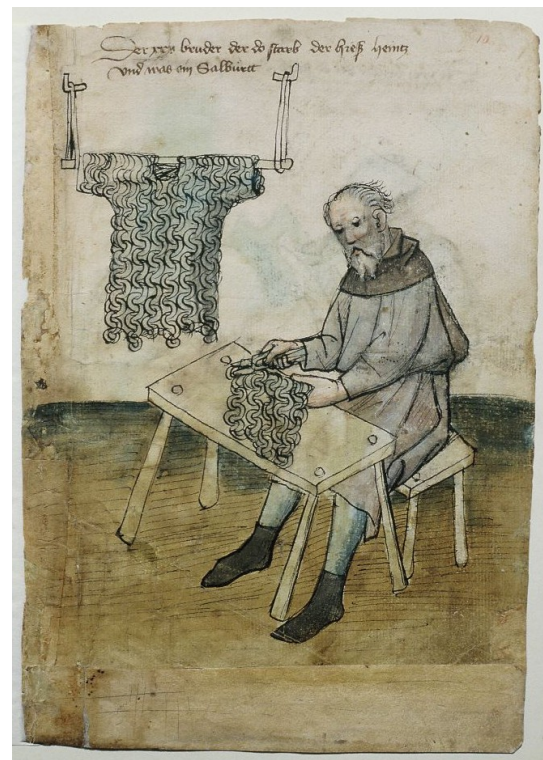 10
Der bruder der do starb der hieß heintz
vnd was ein Salbürtt